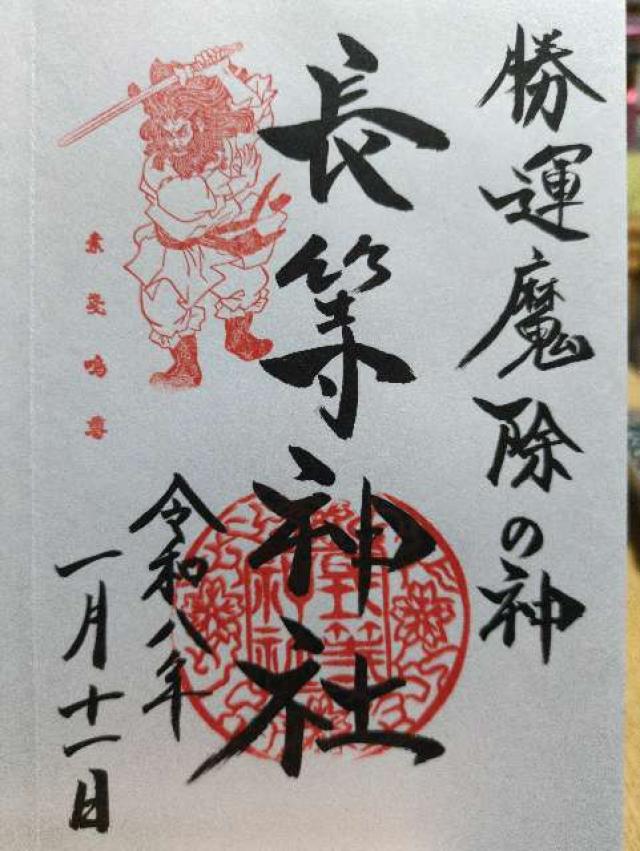 勝運魔除の神
長等神社
素戔嗚尊
長等神社
令和八年
一月十一日